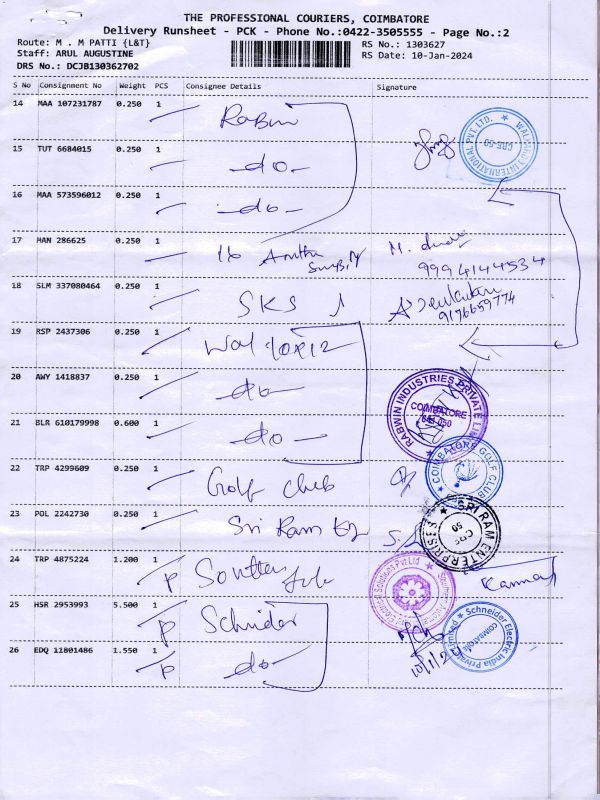 THE PROFESSIONAL COURIERS, COIMBATORE
Delivery Runsheet - PCK - Phone No.:0422-3505555 - Page No.:2
Route: M . M PATTI {L&T}
RS No.: 1303627
Staff: ARUL AUGUSTINE
RS Date: 10-Jan-2024
DRS No.: DCJB130362702
S No Consignment No Weight PCS Consignee Details Signature
14 MAA 107231787 0.250 1 Rabwin
15 TUT 6684015 0.250 1 -do-
16 MAA 573596012 0.250 1 -do-
17 MAN 286625 0.250 1 16
9994144534
18 SLM 337080464 0.250 1 SKS
9176659774
19 RSP 2437306 0.250 1
20 AWY 1418837 0.250 1 -do-
RABWIN INDUSTRIES PRIVATE
COIMBATORE
21 BLR 610179998 0.600 1 -do-
COIMBATORE GOLF CLUB
22 TRP 4299609 0.250 1 Golf Club
23 POL 2242730 0.250 1 Sri Ram
SRI RAM ENTERPRISES
CBE
50
24 TRP 4875224 1.200 1 P
Electrical Solutions Pvt Ltd
25 HSR 2953993 5.500 1 P
Schneider Electric India Private Limited
COIMBATORE
26 EDQ 11801486 1.550 1 P -do-
10/1/24